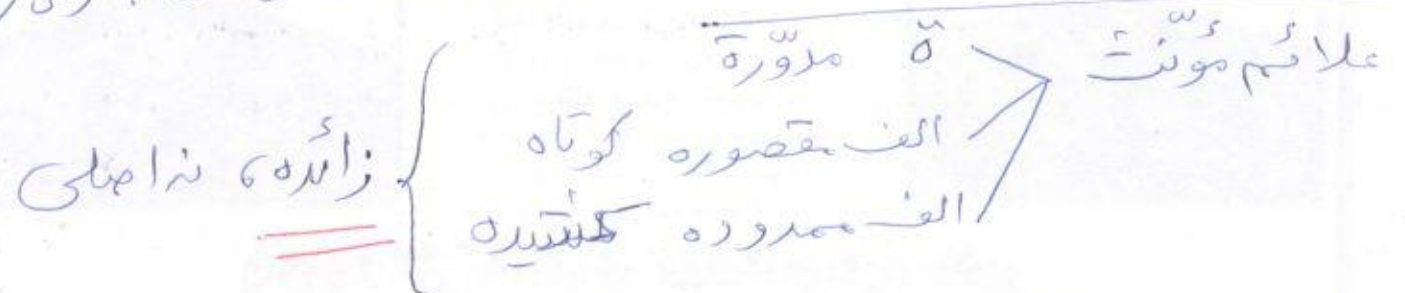 علائم مؤنّث
ة مدوّرة
الف مقصوره کوتاه
الف ممدوده کشیده
زائده، نه اصلی